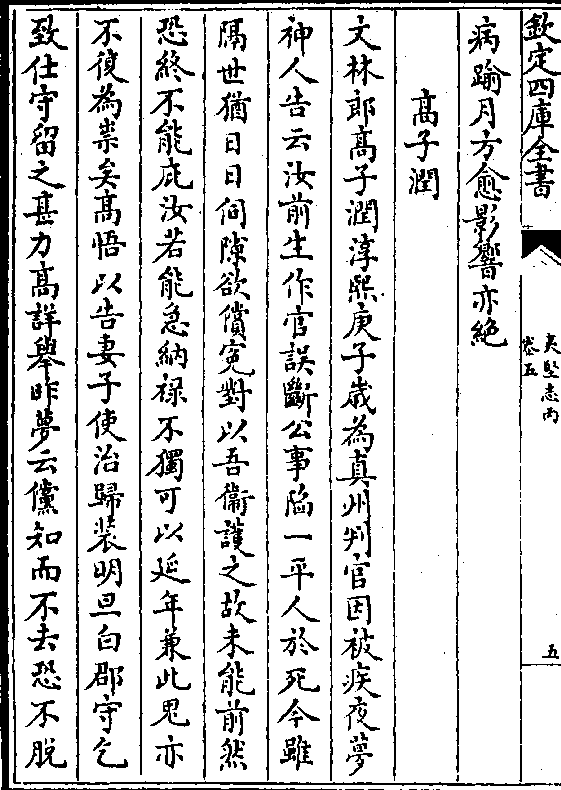 欽定四庫全書
夷堅志丙
卷五
五
病踰月方愈影響亦絶
髙子潤
文林郎髙子潤淳熙庚子歳為真州判官因被疾夜夢
神人告云汝前生作官誤斷公事陷一平人於死今雖
隔世猶日日伺隙欲償寃對以吾衞護之故未能前然
恐終不能庇汝若能急納禄不獨可以延年兼此鬼亦
不復為祟矣髙悟以告妻子使治歸装明旦白郡守乞
致仕守留之甚力髙詳舉昨夢云儻知而不去恐不脱